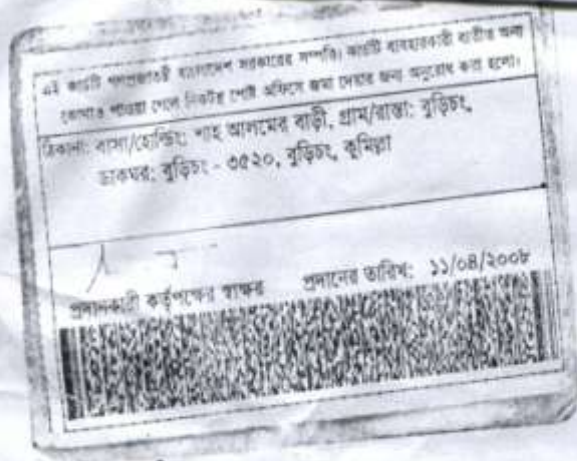 এই কার্ডটি গণপ্রজাতন্ত্রী বাংলাদেশ সরকারের সম্পত্তি। কার্ডটি ব্যবহারকারী ব্যতীত অন্য
কোথাও পাওয়া গেলে নিকটস্থ পোষ্ট অফিসে জমা দেবার জন্য অনুরোধ করা হলো।
ঠিকানা: বাসা/হোল্ডিং: শাহ আলমের বাড়ী, গ্রাম/রাস্তা: বুড়িচং,
ডাকঘর: বুড়িচং - ৩৫২০, বুড়িচং, কুমিল্লা
প্রদানকারী কর্তৃপক্ষের স্বাক্ষর প্রদানের তারিখ: ১১/০৪/২০০৮